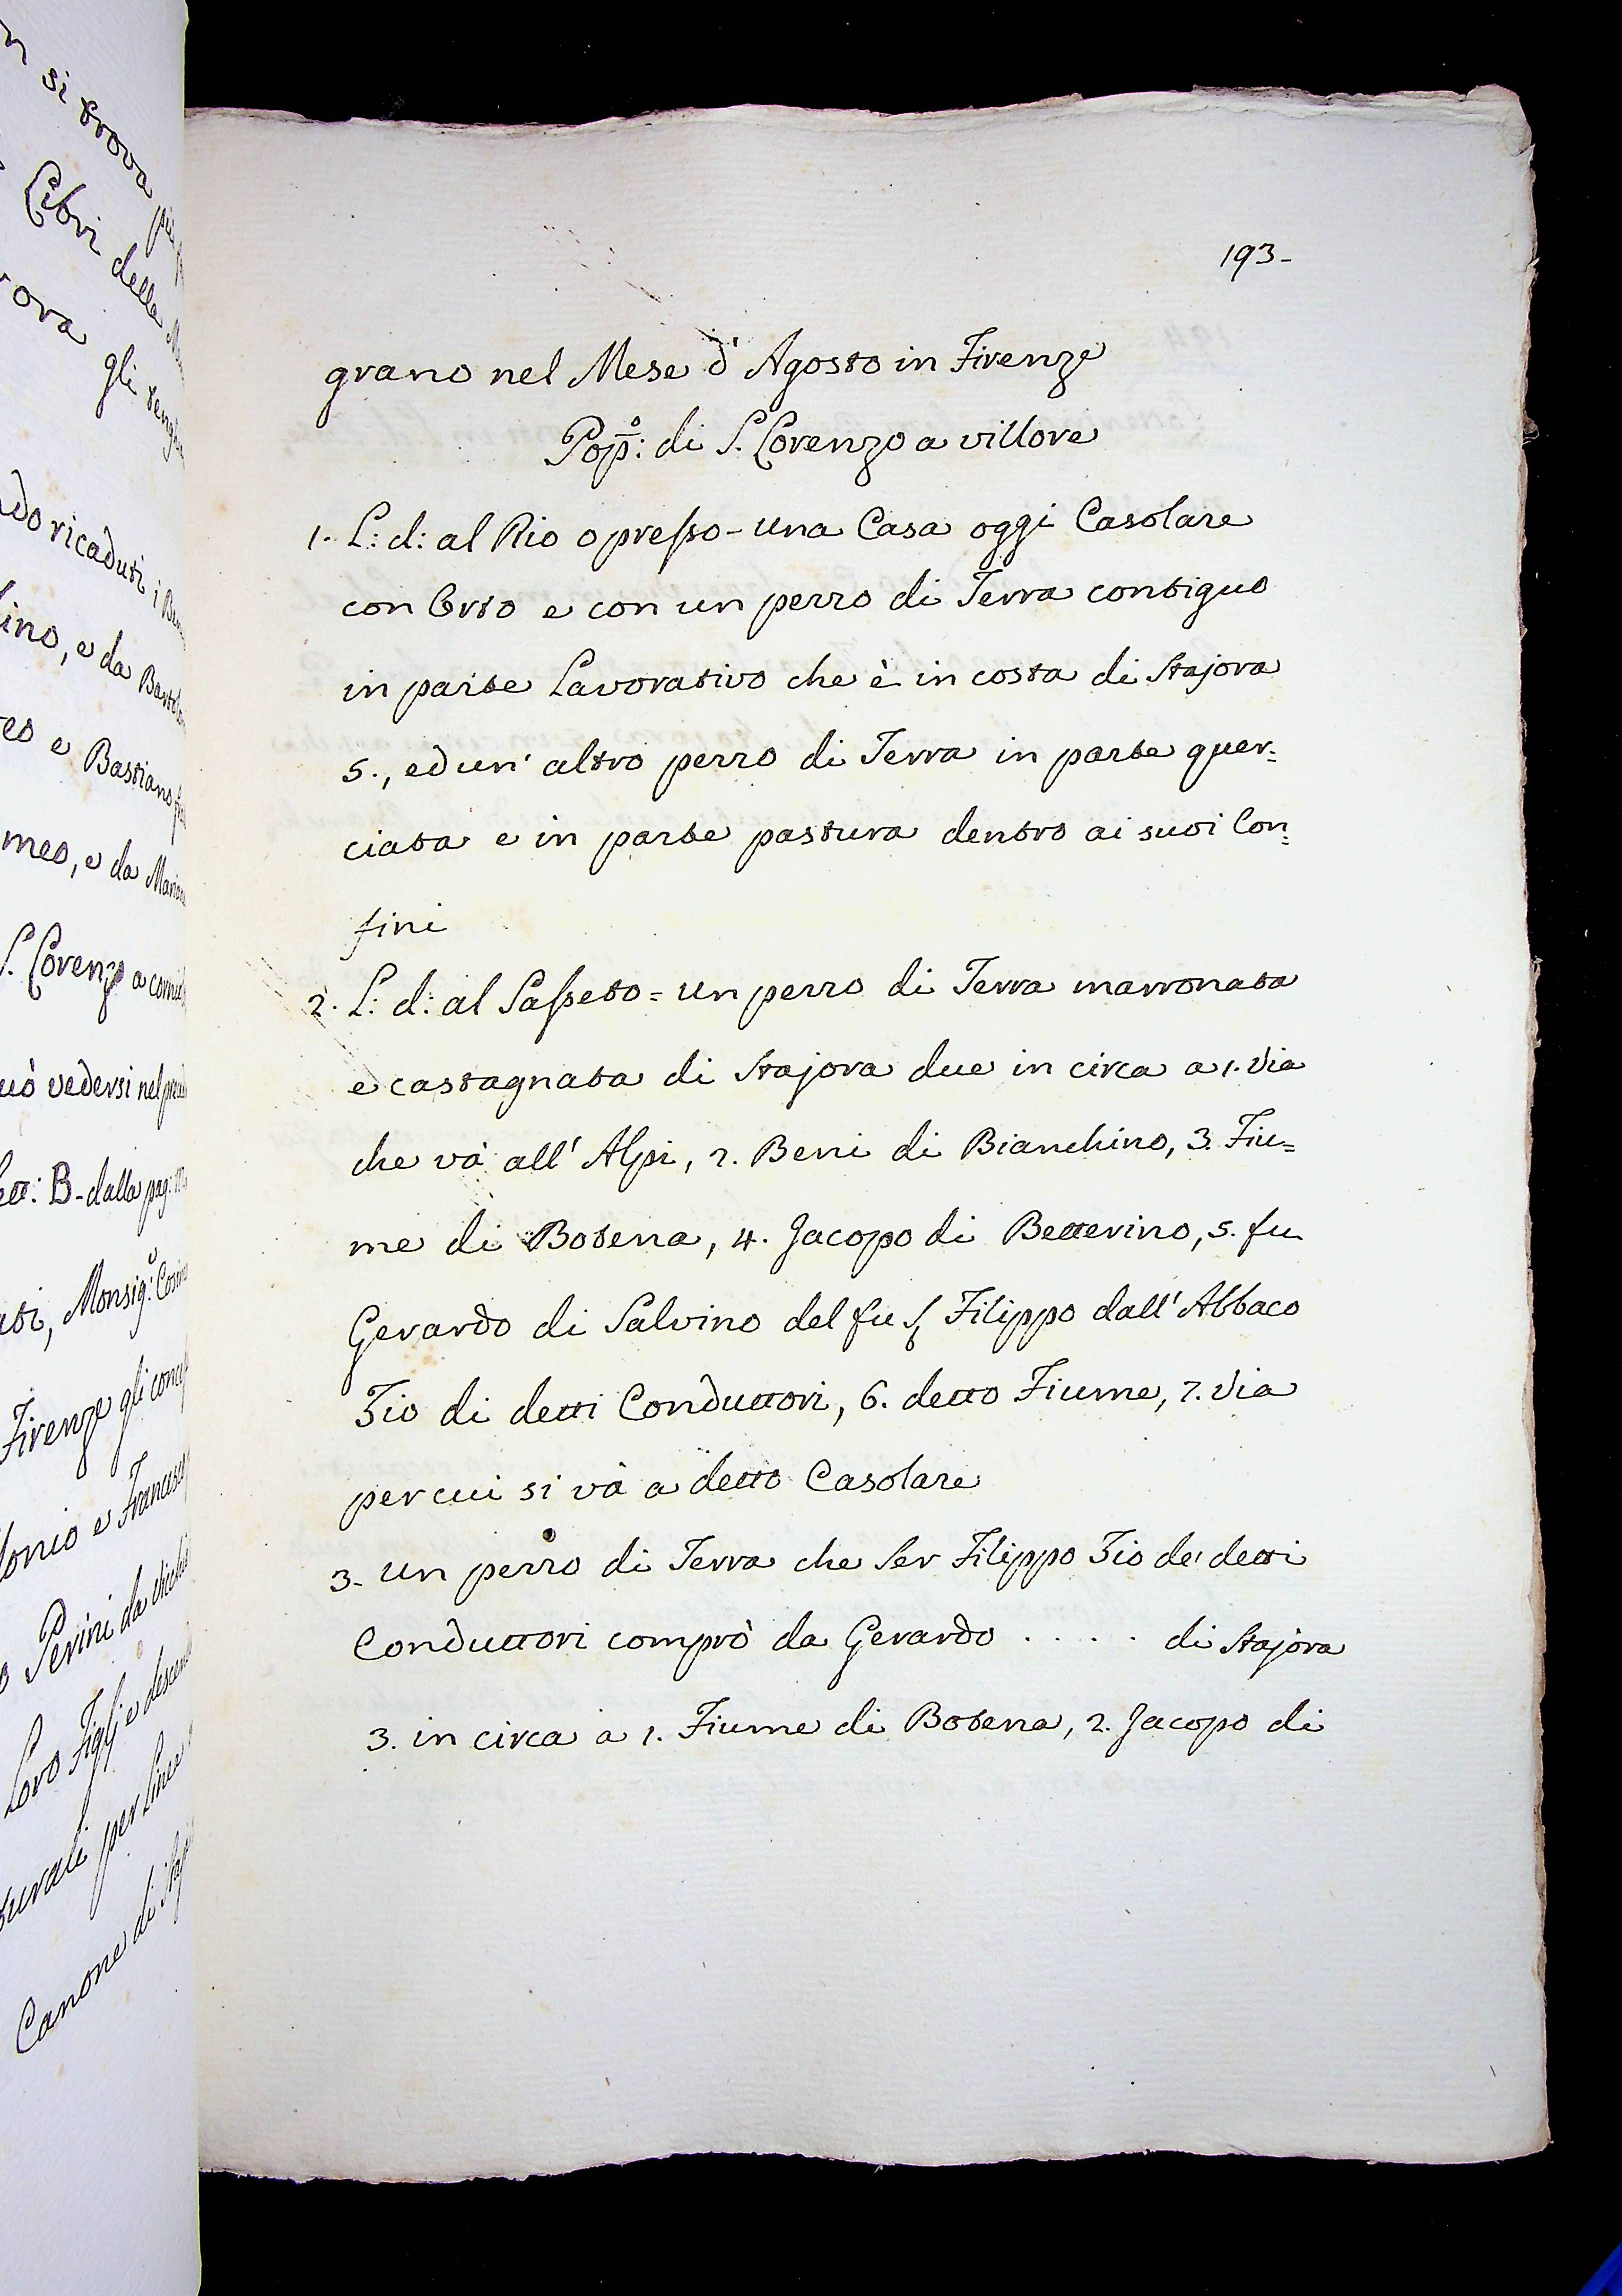 193-
grano nel Mese d' Agosto in Firenze
Popo: di S. Lorenzo a villore
1. L: d: al Rio o presso - una Casa oggi Casolare
con Orto e con un pezzo di Terra contiguo
in parte Lavorativo che è in costa di Stajora
5., ed un' altro pezzo di Terra in parte quer=
ciata e in parte pastura dentro ai suoi Con=
fini
2. L: d: al Sasseto = un pezzo di Terra marronata
e castagnata di Stajora due in circa a 1. via
che và all' Alpi, 2. Beni di Bianchino, 3. Fiu=
me di Botena, 4. Jacopo di Betterino, 5. fu
Gerardo di Salvino del fu S. Filippo dall' Abbaco
Zio di detti Conduttori, 6. detto Fiume, 7. via
per cui si và a detto Casolare
3- un pezzo di Terra che Ser Filippo Zio de' detti
Conduttori comprò da Gerardo . . . . di Stajora
3. in circa a 1. Fiume di Botena, 2. Jacopo di
si trova
Libri della
gli
ricaduti i
e da
e Bastiano
e da
S. Lorenzo a
vedersi nel
B- dalla pag:
Monsig:
Firenze gli
e Francesco
Perini da
Loro Figlj e
per Linea
Canone di